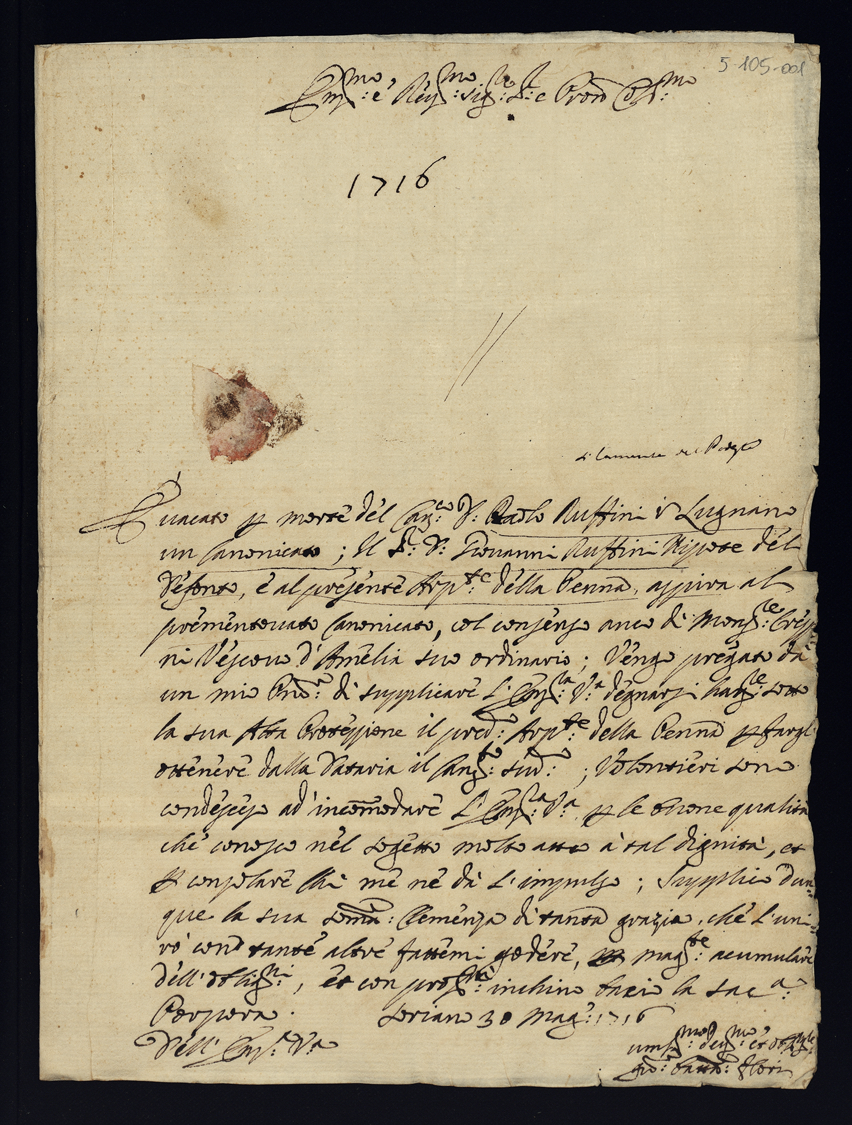 5-105-001
Em:mo e Rev:mo Sig:re S:r e Pron Col:mo
1716
È vacato p morte del Can:co D: Paolo Ruffini i Lugnano
un Canonicato ; Il S:r D: Giovanni Ruffini Nipote del
Defonto, è al presente Arp:te della Penna, aspira al
prementovato Canonicato, col consenso anco di Mons:re Cresp
ni Vescovo d'Amelia suo ordinario ; Vengo pregato da
un mio di supplicare L'Em:za V:a degnarsi sotto
la sua Alta Protezzione il pred:o Arp:te della Penna p fargl
ottenere dalla Dataria il Can:to sud:o ; Volontieri sono
condesceso ad'incomodare L'Em:za V:a p le buone qualità
che conosco nel sogetto molto atto à tal dignità, et
p consolare chi me ne dà L'impulso ; Supplico dun=
que la sua somma: Clemenza di tanta grazia, che L'uni=
rò con tante altre fattemi godere, mag:te acumulare
dell'oblig:ni, et con prof:mo inchino bacio la sac:a
Porpora . Soriano 30 Mag:o 1716
Dell' Em:za V:a
um:mo dev:mo et obl:mo
Gio: Batta: